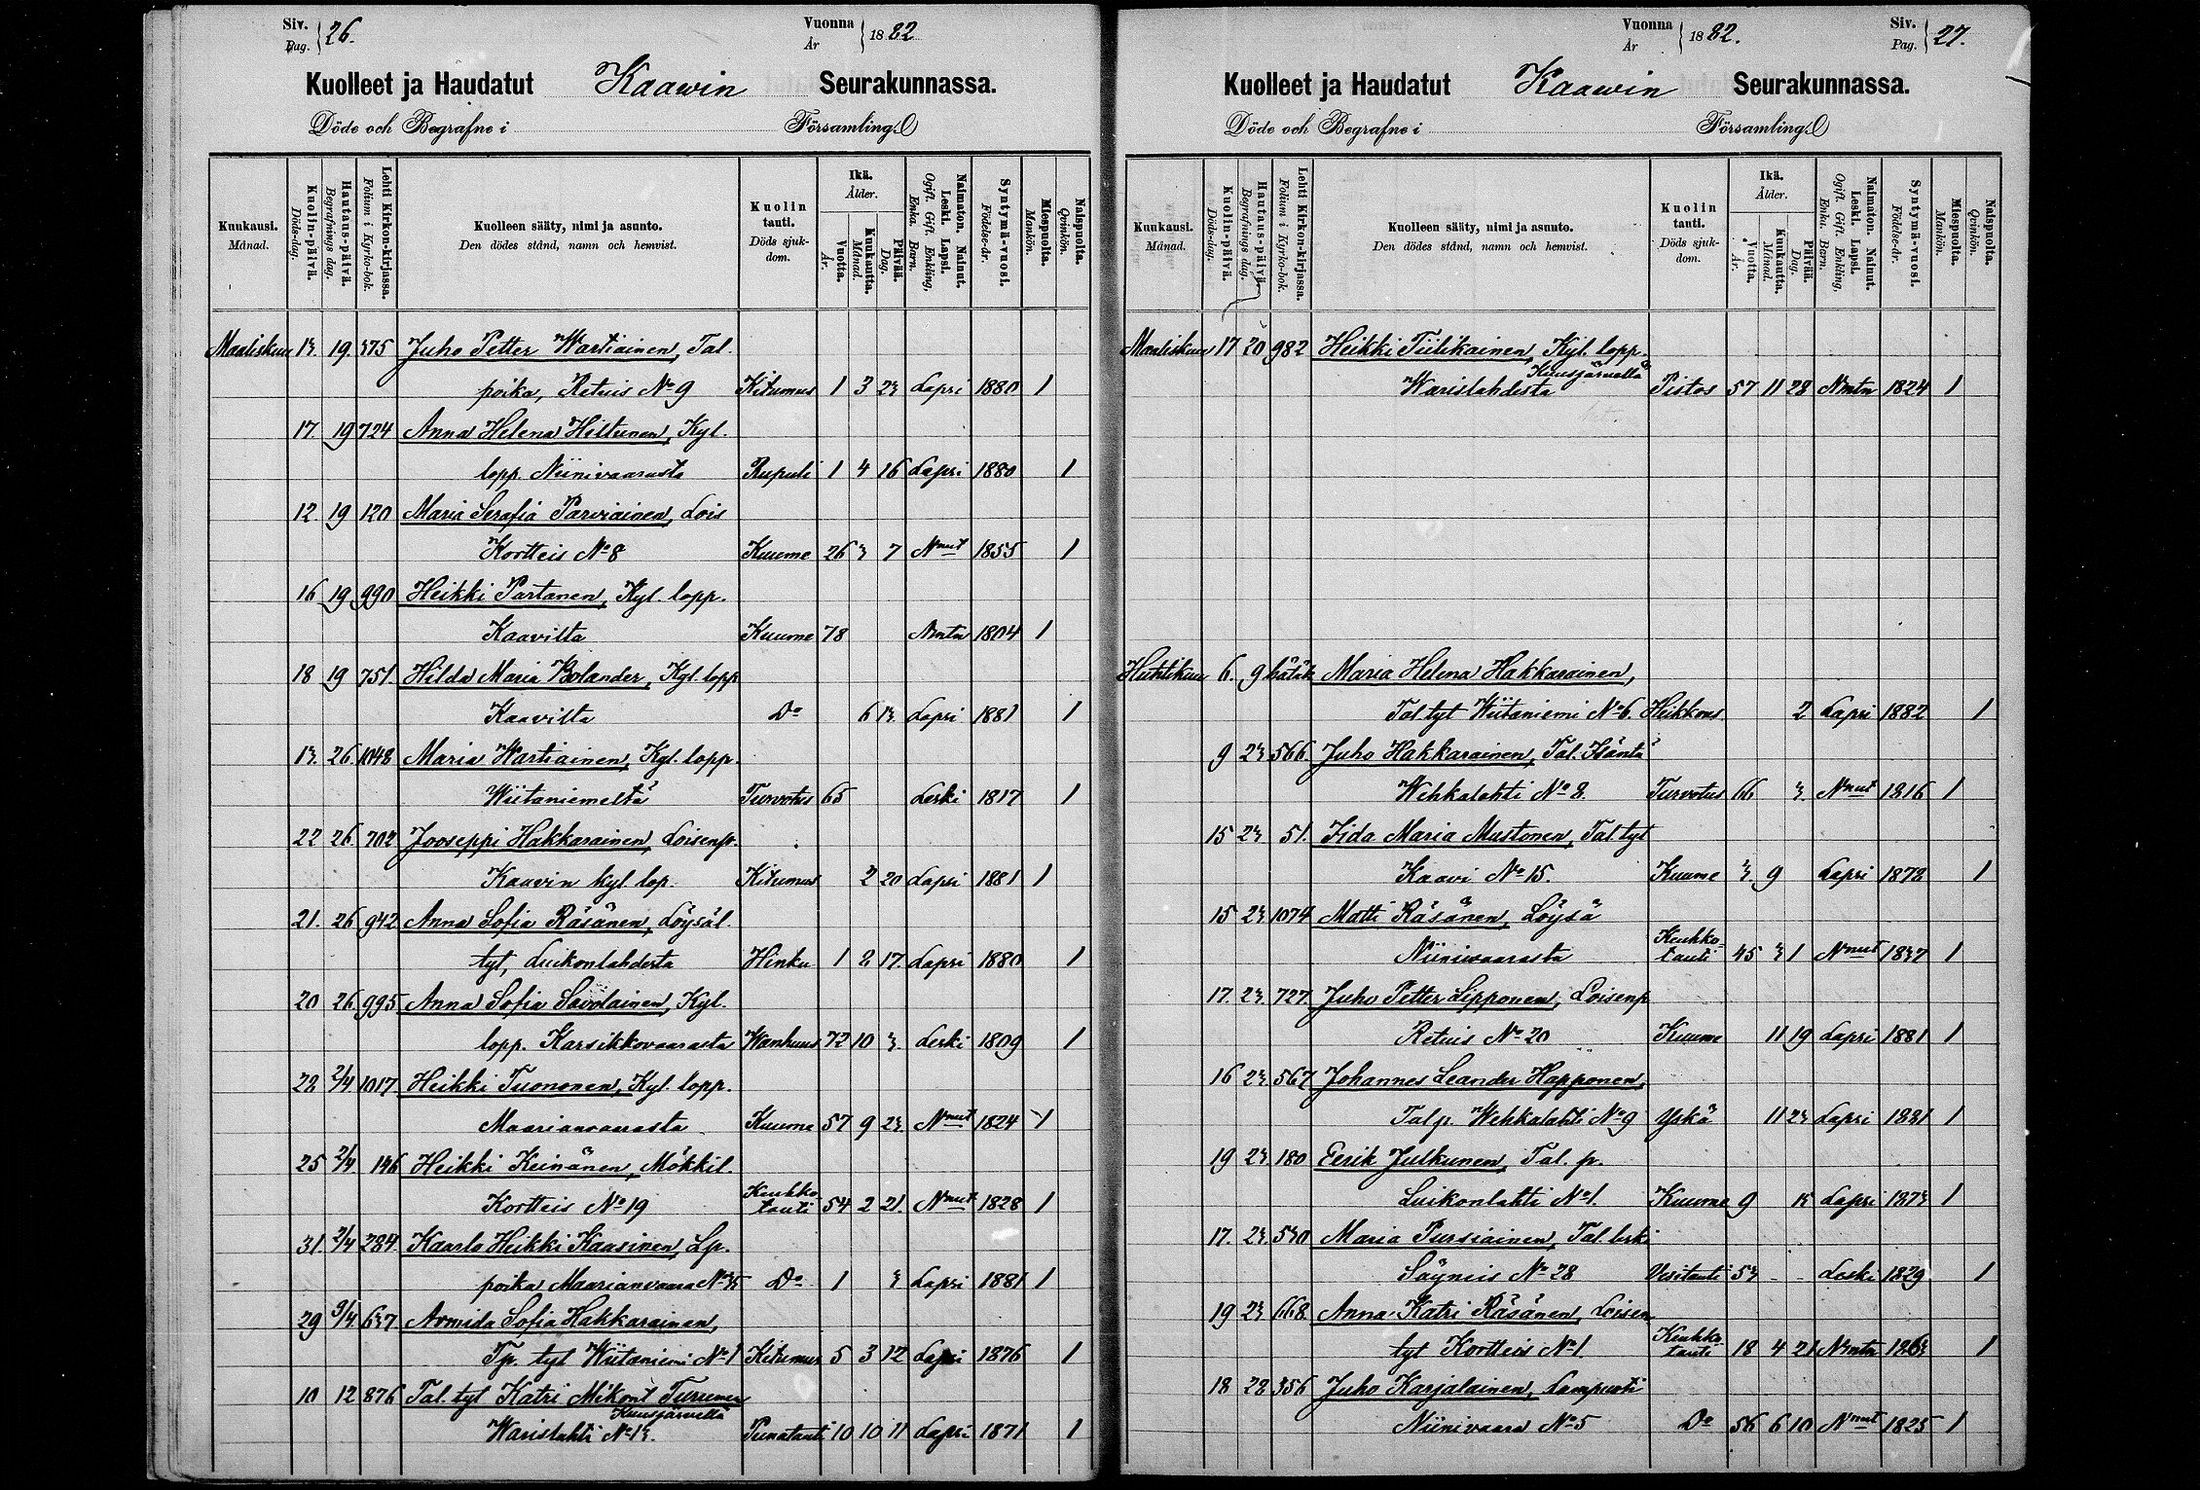 Siv. Pag. 26. Vuonna År 1882
Kuolleet ja Haudatut Kaawin Seurakunnassa.
Döde och Begrafne i Församling.
Kuukausi. Månad.
Kuolin-päivä. Döds-dag.
Hautaus-päivä. Begrafnings dag.
Lehti Kirkon-kirjassa. Folium i Kyrko-bok.
Kuolleen sääty, nimi ja asunto. Den dödes stånd, namn och hemvist.
Kuolin tauti. Döds sjuk-dom.
Ikä. Ålder.
Vuotta. År.
Kuukautta. Månad.
Päivää. Dag.
Naimaton. Nainut. Leski. Lapsi. Ogift. Gift. Enkling, Enka. Barn.
Syntymä-vuosi. Födelse-år.
Miespuolta. Mankön.
Naispuolta. Qvinkön.
Maaliskuu 13. 19. 375 Juho Petter Wartiainen, Tal.
poika, Retuis No 9 Kitumus 1 3 23 Lapsi 1880 1
17. 19 724 Anna Helena Hiltunen, Kyl.
lopp. Niinivaarasta Rupuli 1 4 16 Lapsi 1880 1
12. 19 120 Maria Serafia Parviainen, Lois
Kortteis No 8 Kuume 26 3 7 Nnut 1855 1
16 19 990 Heikki Partanen, Kyl. lopp.
Kaavilta Kuume 78 Nmtn 1804 1
18 19 751. Hilda Maria Bolander, Kyl. lopp
Kaavilta Do 6 13. Lapsi 1881 1
13. 26. 1048 Maria Wartiainen, Kyl. lopp.
Wiitaniemeltä Turvotus 65 Leski 1817 1
22 26. 702 Jooseppi Hakkarainen, Loisenp.
Kaavin kyl lop. Kitumus 2 20 Lapsi 1881 1
21. 26 942 Anna Sofia Räsänen, Löysäl.
tyt, Luikonlahdesta Hinku 1 2 17. Lapsi 1880 1
20 26. 995 Anna Sofia Savolainen, Kyl.
lopp. Karsikkovaarasta Wanhuus 72 10 3. Leski 1809 1
22 2/4 1017. Heikki Tuononen, Kyl. lopp.
Maarianvaarasta Kuume 57 9 23. Nnut 1824 1
25 2/4 146 Heikki Keinänen, Mökkil.
Kortteis No 19 Keuhko-tauti 54 2 21. Nnut 1828 1
31. 2/4 284 Kaarlo Heikki Kaasinen, Lp.
poika Maarianvaara No 35 Do 1 3 Lapsi 1881 1
29 9/4 637 Armida Sofia Hakkarainen,
Tp. tyt Wiitaniemi No 1 Kitumus 5 3 12 Lapsi 1876 1
10 12 876 Tal. tyt Katri Mikont. Turunen
Kuusjärvellä
Warislahti No 13. Punatauti 10 10 11 Lapsi 1871 1
Vuonna År 1882. Siv. Pag. 27.
Kuolleet ja Haudatut Kaawin Seurakunnassa.
Döde och Begrafne i Församling.
Kuukausi. Månad.
Kuolin-päivä. Döds-dag.
Hautaus-päivä. Begrafnings dag.
Lehti Kirkon-kirjassa. Folium i Kyrko-bok.
Kuolleen sääty, nimi ja asunto. Den dödes stånd, namn och hemvist.
Kuolin tauti. Döds sjuk-dom.
Ikä. Ålder.
Vuotta. År.
Kuukautta. Månad.
Päivää. Dag.
Naimaton. Nainut. Leski. Lapsi. Ogift. Gift. Enkling, Enka. Barn.
Syntymä-vuosi. Födelse-år.
Miespuolta. Mankön.
Naispuolta. Qvinkön.
Maaliskuu 17 20 982 Heikki Tiilikainen, Kyl. lopp.
Kuusjärvellä
Warislahdesta Pistos 57 11 28 Nmtn 1824 1
Huhtikuu 6. 9 Maria Helena Hakkarainen,
Tal tyt Wiitaniemi No 6. Heikkous. 2 Lapsi 1882 1
9 23 566. Juho Hakkarainen, Tal. Isäntä
Wehkalahti No 8. Turvotus 66 3. Nnut 1816 1
15 23 51. Iida Maria Mustonen, Tal. tyt
Kaavi No 15. Kuume 3. 9 Lapsi 1878 1
15 23 1074 Matti Räsänen, Löysä
Niinivaarasta Keuhko-tauti 45 3 1 Nnut 1837 1
17. 23. 727. Juho Petter Lipponen, Loisenp
Retuis No 20 Kuume 11 19 Lapsi 1881 1
16 23 567 Johannes Leander Happonen,
Talp. Wehkalahti No 9 Yskä 11 23 Lapsi 1881 1
19 23 180 Eerik Julkunen, Tal. p.
Luikonlahti No 1. Kuume 9 15 Lapsi 1873 1
17. 23. 530 Maria Pursiainen, Tal. leski
Säyneis No 28 Vesitauti 53 Leski 1829 1
19 23 668. Anna Katri Räsänen, Loisen
tyt Kortteis No 1. Keuhko-tauti 18 4 21 Nmtn 1863 1
18 23 356 Juho Karjalainen, Lampuoti
Niinivaara No 5 Do 56 6 10 Nnut 1825 1